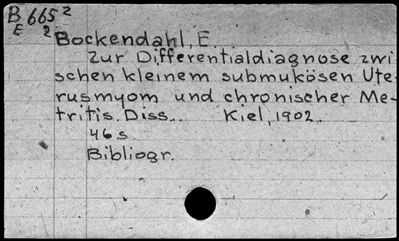 B 665²
E 2
Bockendahl, E
Zur Differentialdiagnose zwi
schen kleinem submukösen Ute-
rusmyom und chronischer Me-
tritis. Diss.. Kiel, 1902.
46 s
Bibliogr.